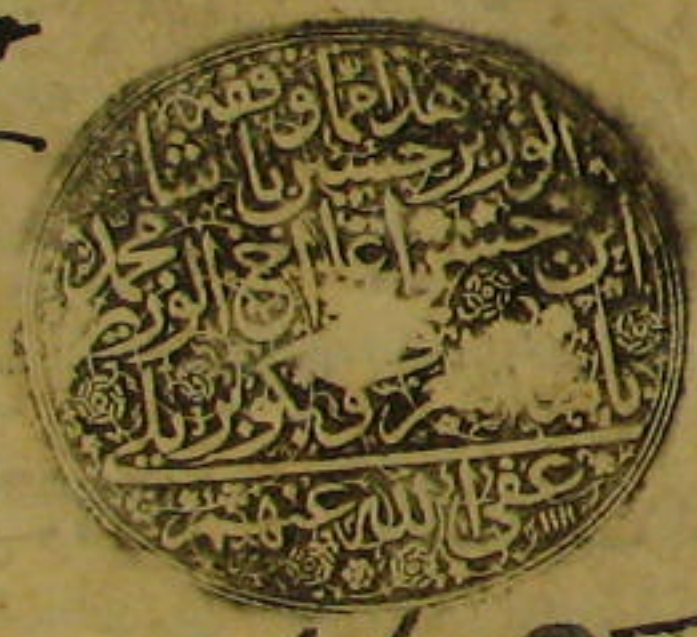 هذا مما وقفه
الوزير حسين باشا
ابن حسن اغا اخ الوزير محمد
باشا كوبريلي
عفى الله عنهم